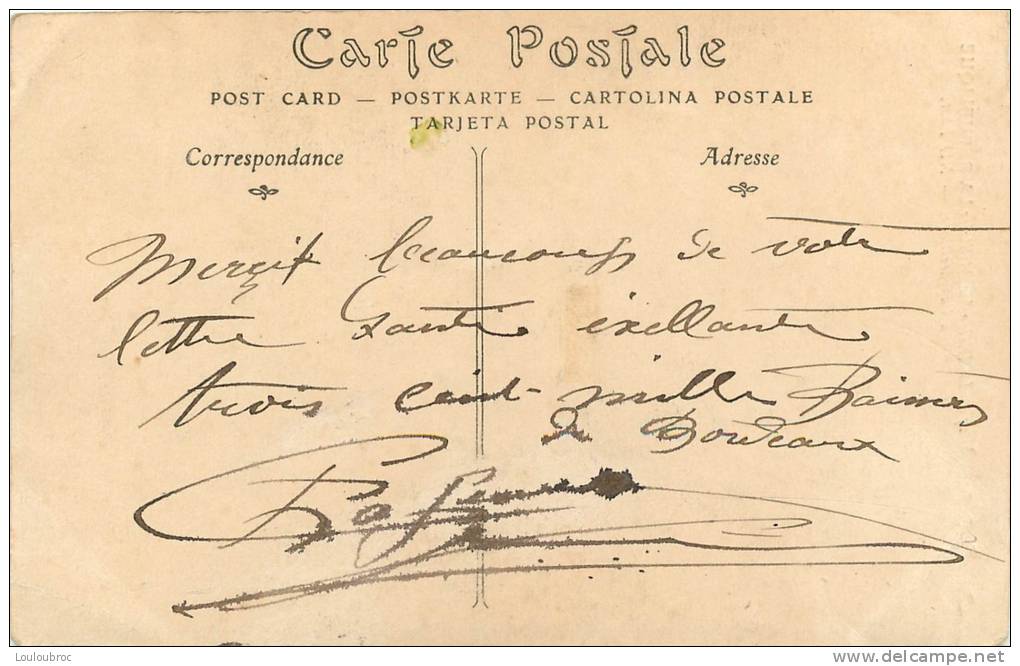 Carte Postale
POST CARD — POSTKARTE — CARTOLINA POSTALE
TARJETA POSTAL
Correspondance
Adresse
Merçit beaucoup de votre
lettre Santé exellante
trois cent mille Baisers
de Bordeaux
Louloubroc
delcampe.net